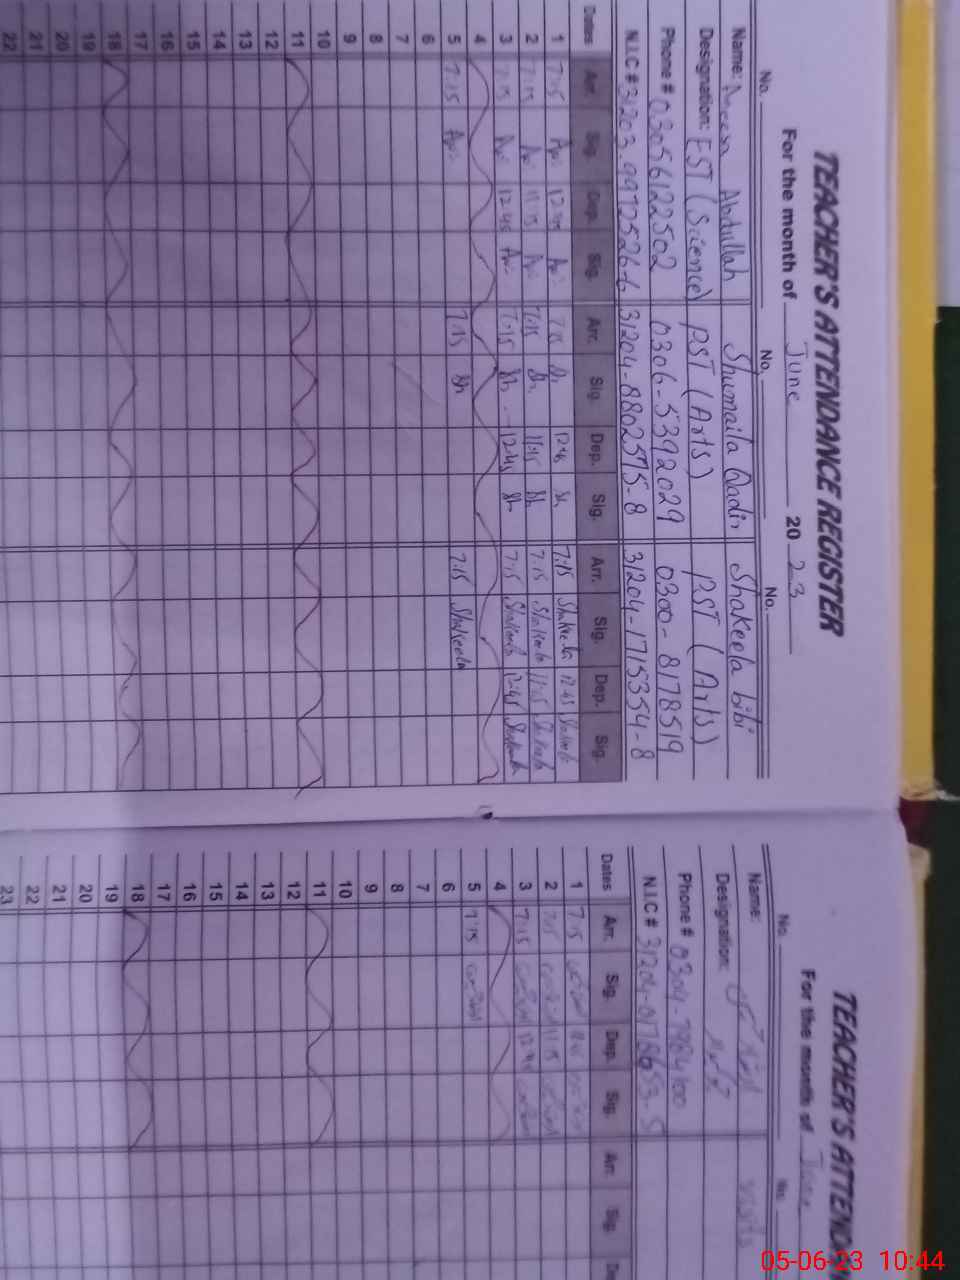 TEACHER'S ATTENDANCE REGISTER
For the month of June 20 23
No. No. No.
Name: Abdullah Shumaila Qadir Shakeela bibi
Designation: EST (Science) PST (Arts) PST (Arts)
Phone # 03056122502 0306-5392029 0300-8178519
N.I.C # 31203 99725266 31204-8802575-8 31204-1715354-8
Dates Arr. Sig. Dep. Sig. Arr. Sig. Dep. Sig. Arr. Sig. Dep. Sig.
1 7:15 12:45 7:15 Sh 12:45 Sh 7:15 Shakeela 12:45 Shakeela
2 7:15 11:15 7:15 Sh 11:45 Sh 7:15 Shakeela 11:45 Shakeela
3 7:15 12:45 7:15 Sh 12:45 Sh 7:15 Shakeela 12:45 Shakeela
4
5 7:15 7:15 Sh 7:15 Shakeela
6
7
8
9
10
11
12
13
14
15
16
17
18
19
20
21
22
TEACHER'S ATTEND
For the month of June
No. No.
Name:
Designation:
Phone # 0304-7984100
N.I.C # 31204-0176653-5
Dates Arr. Sig. Dep. Sig. Arr. Sig. De
1 7:15
2 7:15 11:15
3 7:15 12:45
4
5 7:15
6
7
8
9
10
11
12
13
14
15
16
17
18
19
20
21
22
23
05-06-23 10:44